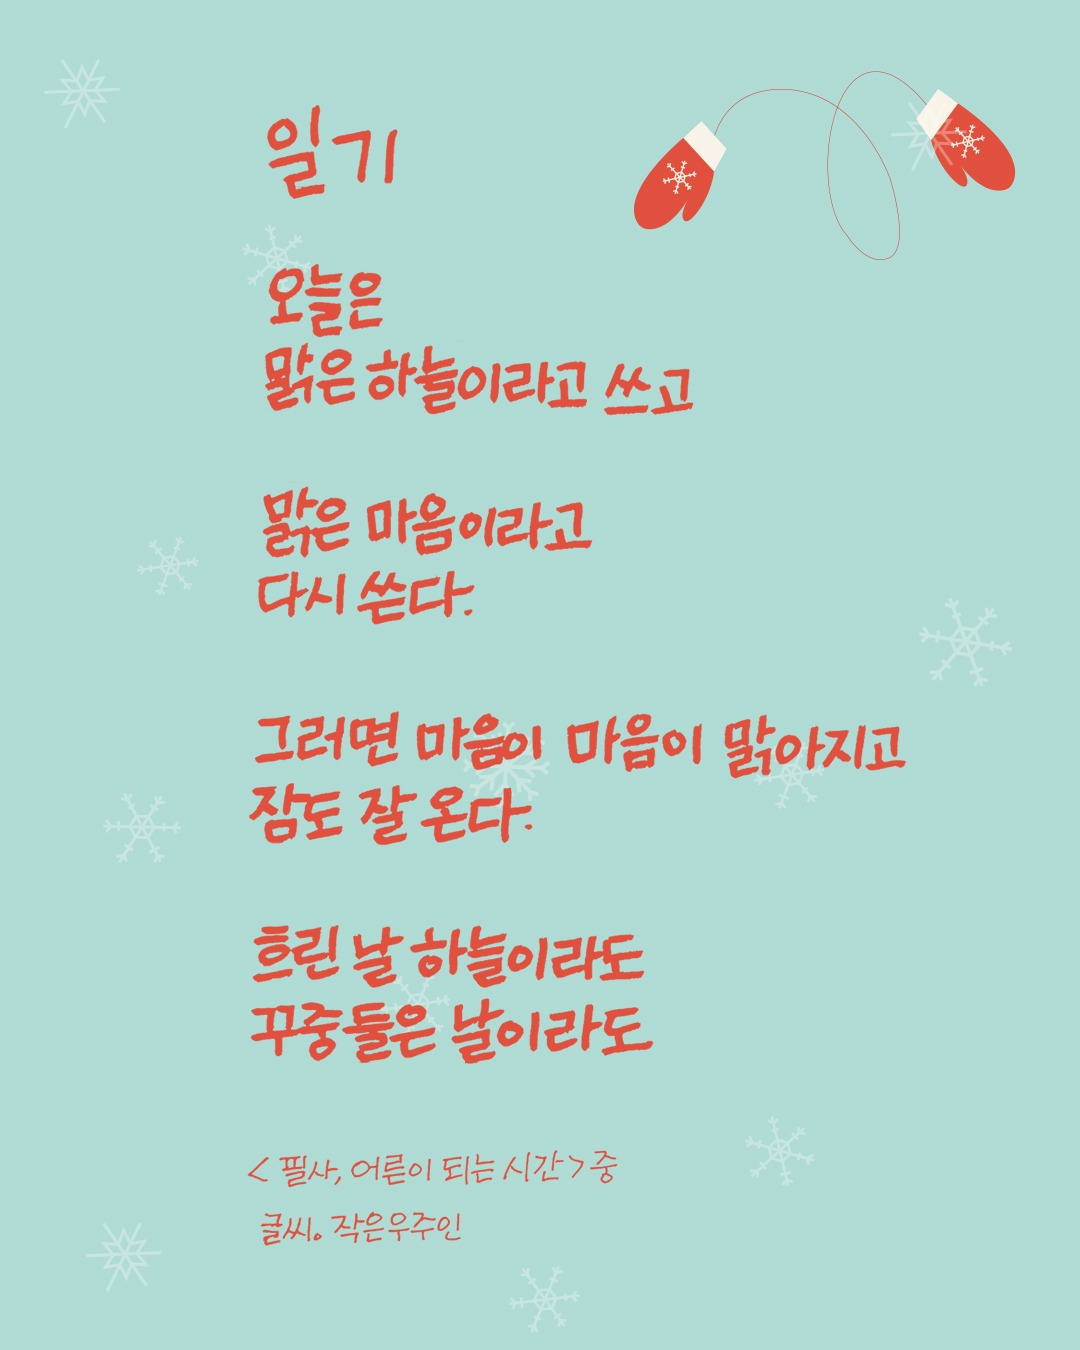 일기
오늘은
맑은 하늘이라고 쓰고
맑은 마음이라고
다시 쓴다.
그러면 마음이 마음이 맑아지고
잠도 잘 온다.
흐린 날 하늘이라도
꾸중들은 날이라도
<필사, 어른이 되는 시간> 중
글씨. 작은우주인